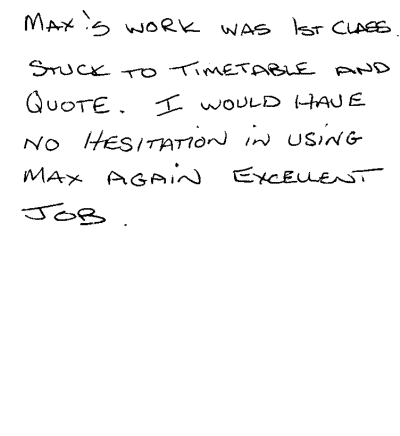 MAX'S WORK WAS 1ST CLASS.
STUCK TO TIMETABLE AND
QUOTE. I WOULD HAVE
NO HESITATION IN USING
MAX AGAIN EXCELLENT
JOB.